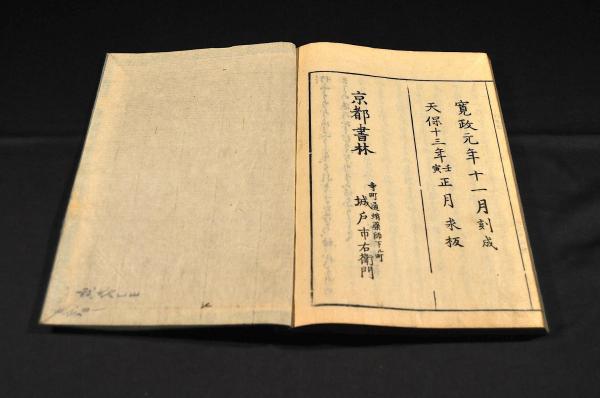 寛政元年十一月刻成
天保十三年壬寅正月求板
京都書林
寺町通蛸薬師下ル町
城戸市右衛門